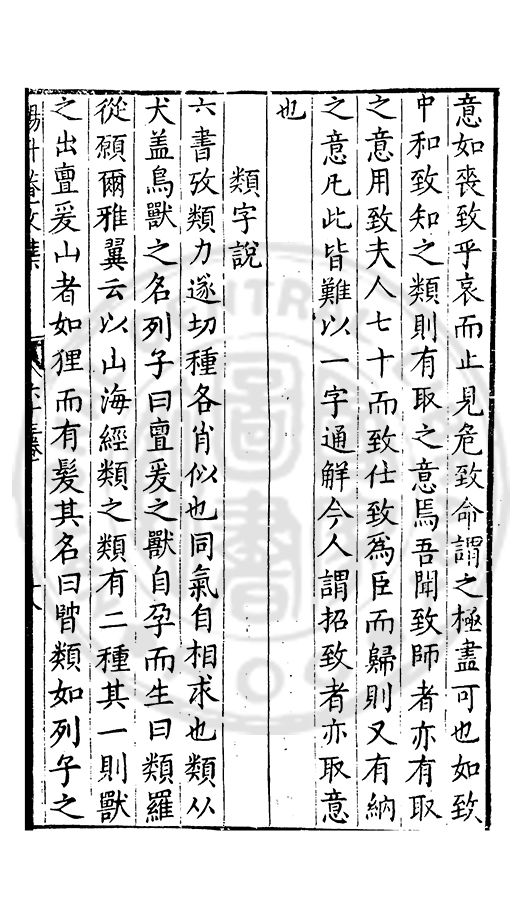 意如喪致乎哀而止見危致命謂之極盡可也如致
中和致知之類則有取之意焉吾聞致師者亦有取
之意用致夫人七十而致仕致為臣而歸則又有納
之意凡此皆難以一字通解今人謂招致者亦取意
也
類字說
六書攷類力遂切種各肖似也同氣自相求也類从
犬盖鳥獸之名列子曰亶爰之獸自孕而生曰類羅
從願爾雅翼云以山海經類之類有二種其一則獸
之出亶爰山者如狸而有髮其名曰類如列子之